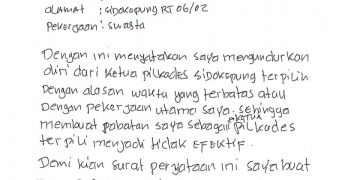 alamat : Sidokepung RT 06/02
Pekerjaan : Swasta
Dengan ini menyatakan saya mengundurkan
diri dari Ketua pilkades sidokepung terpilih
Dengan alasan waktu yang terbatas atau
Dengan pekerjaan utama saya. sehingga
membuat pabatan saya sebagai KETUA Pilkades
terpili menjadi tidak EFEKTIF.
Demi kian surat peryataan ini saya buat